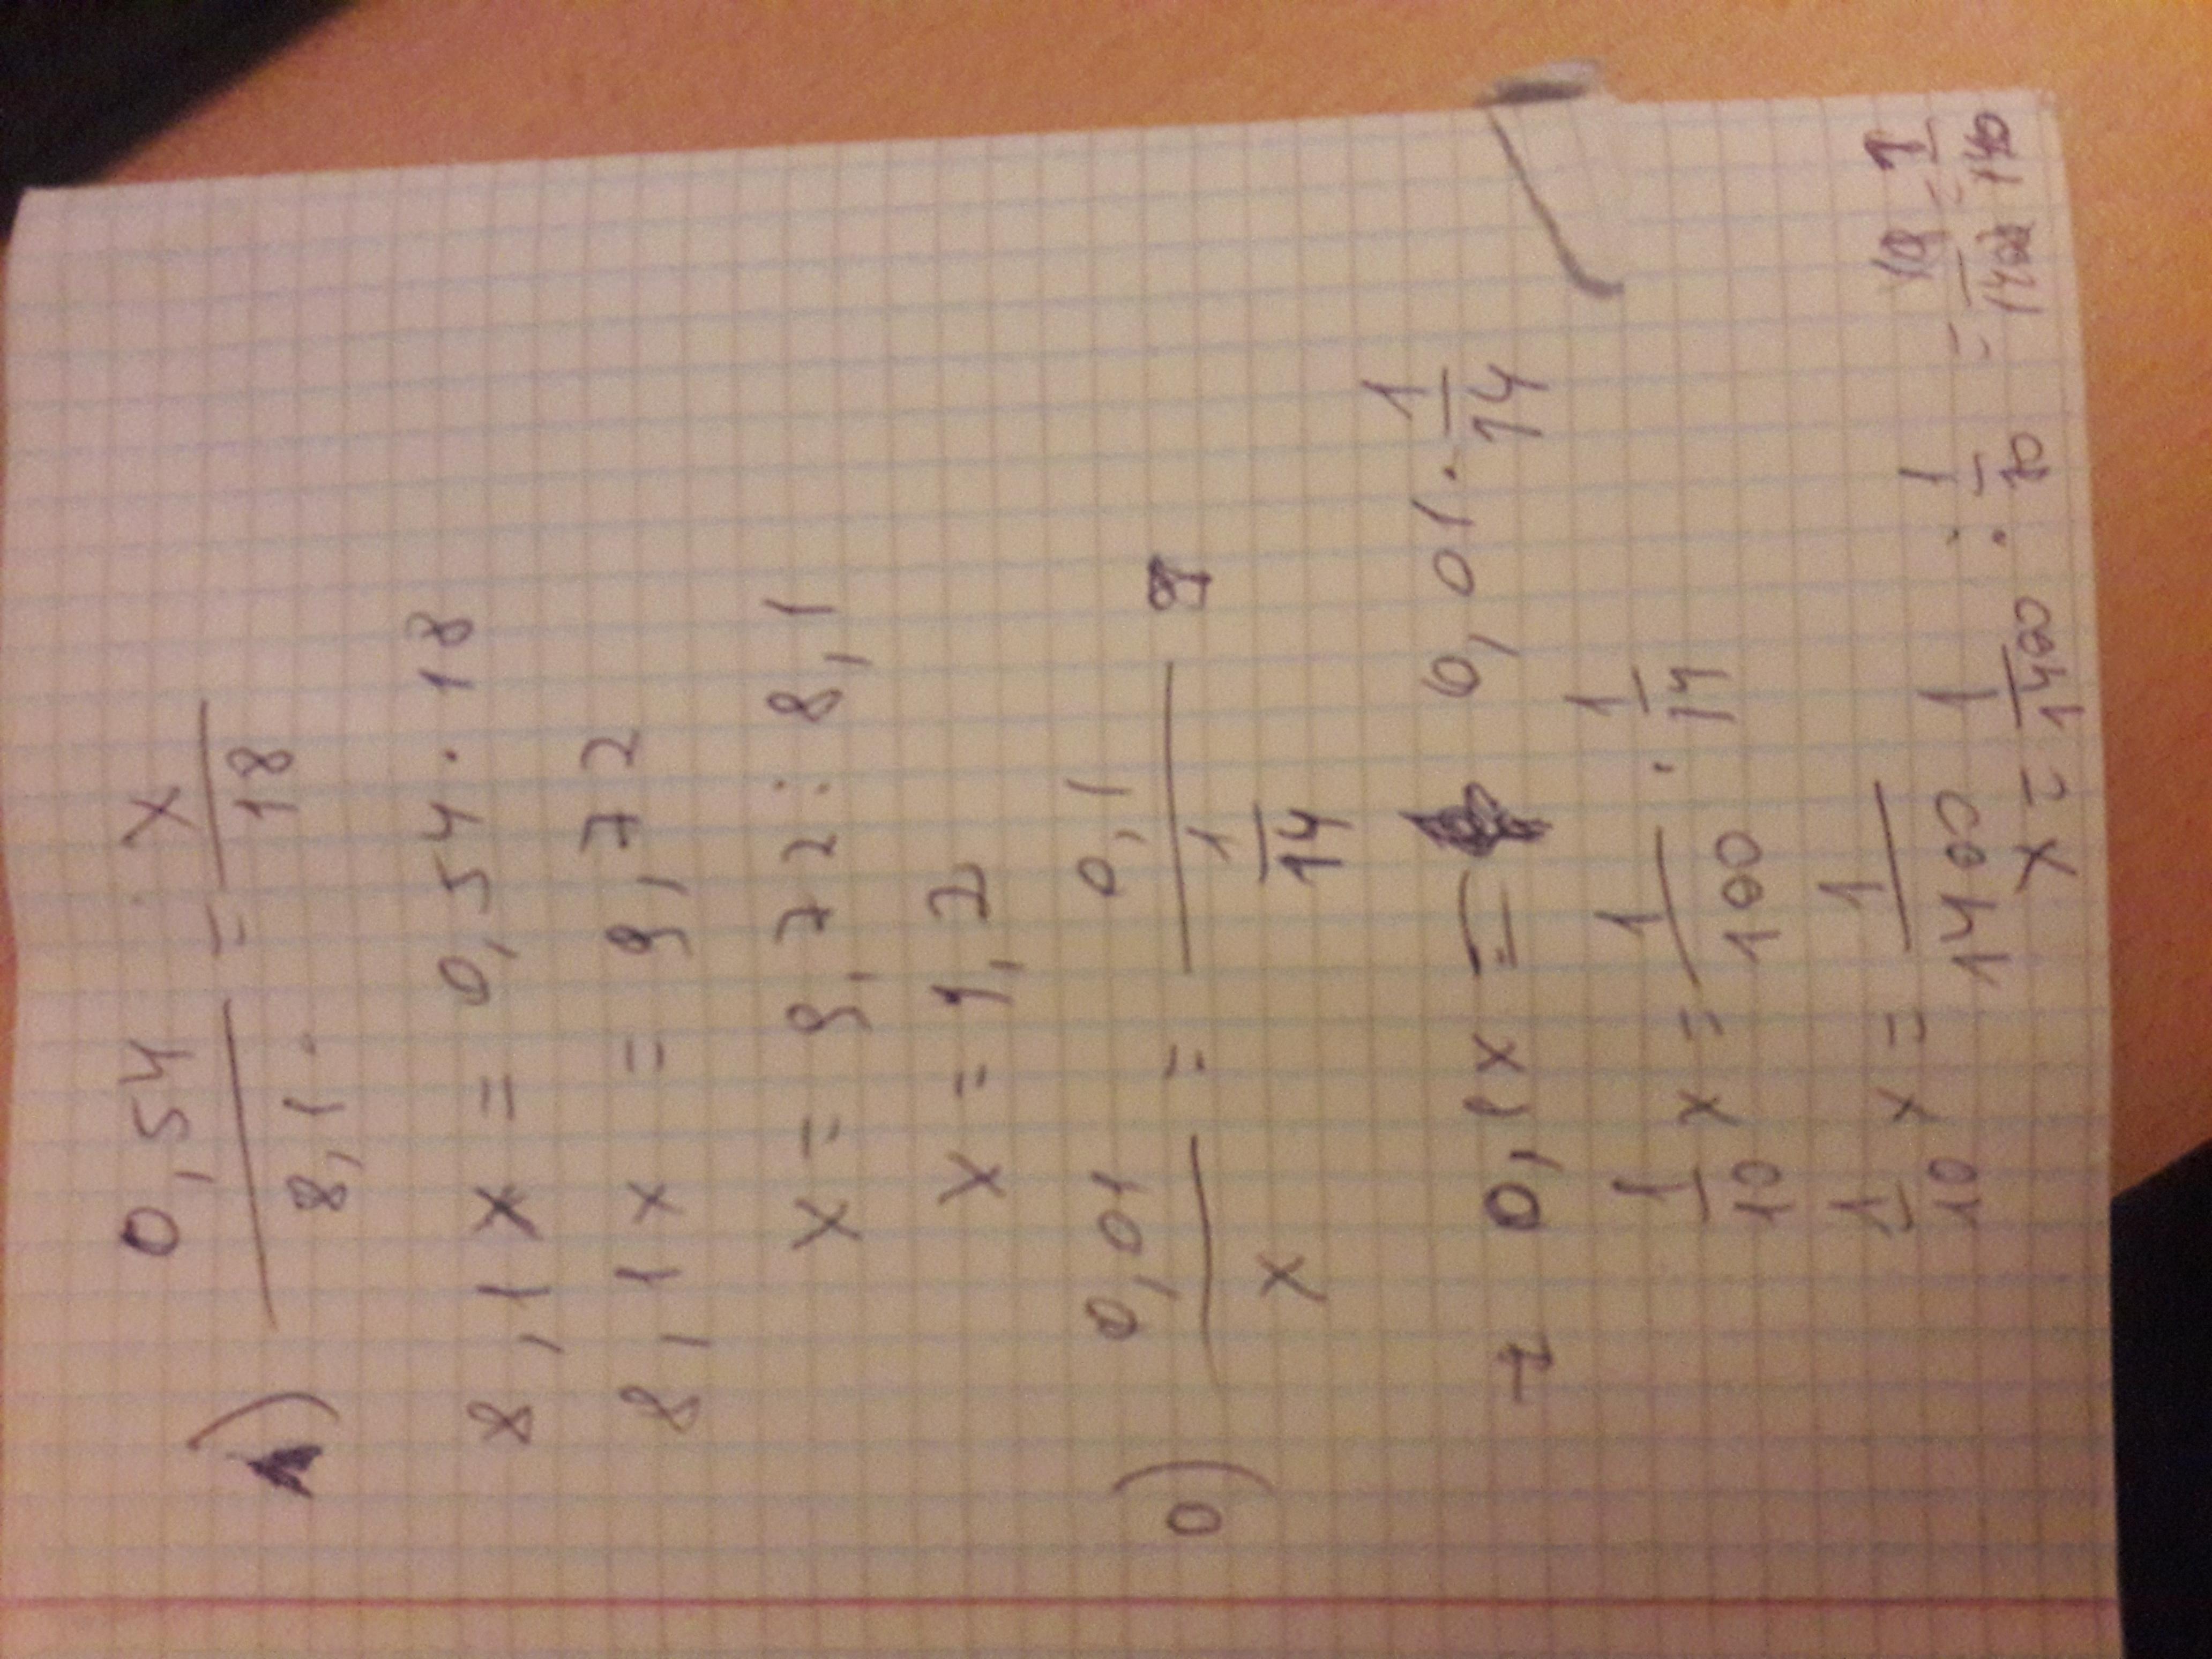 А) 0,54/8,1 = x/18
8,1x = 0,54 · 18
8,1x = 9,72
x = 9,72 : 8,1
x = 1,2
0) 0,01/x = 0,1/(1/14)
0,1x = 0,01 · 1/14
1/10 x = 1/100 · 1/14
1/10 x = 1/1400
x = 1/1400 : 1/10 = 10/1400 = 1/140